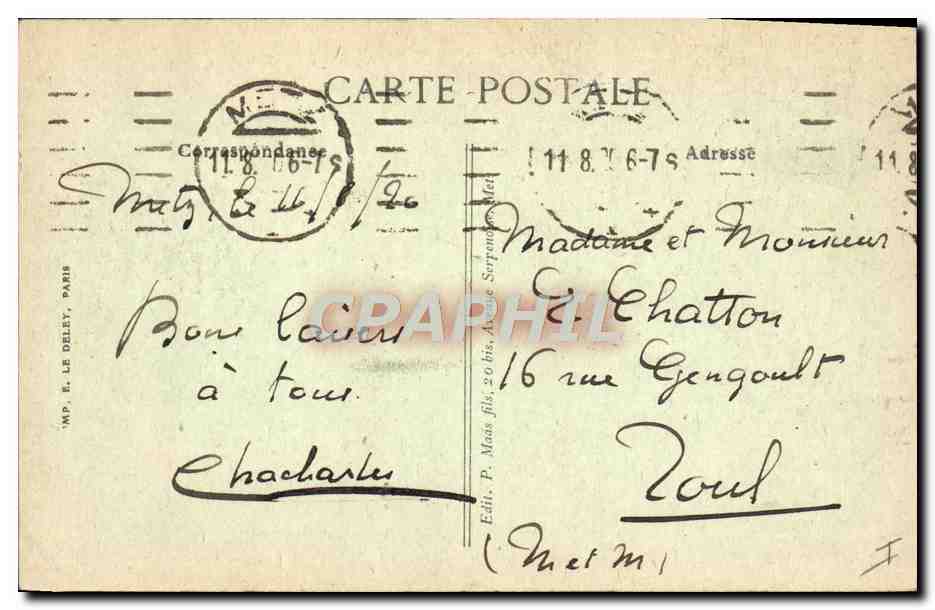 CARTE POSTALE
Correspondance
METZ
11.8. 6-7 S
Metz, le 11/8/20
Bons baisers
à tous
Chacharles
IMP. E. LE DELEY, PARIS
Edit. P. Maas fils, 20 bis, Avenue Serpenoise, Metz
Adresse
11 8. 6-7 S
11 8
Madame et Monsieur
Chatton
16 rue Gengoult
Toul
(M et M)
CPAPHIL